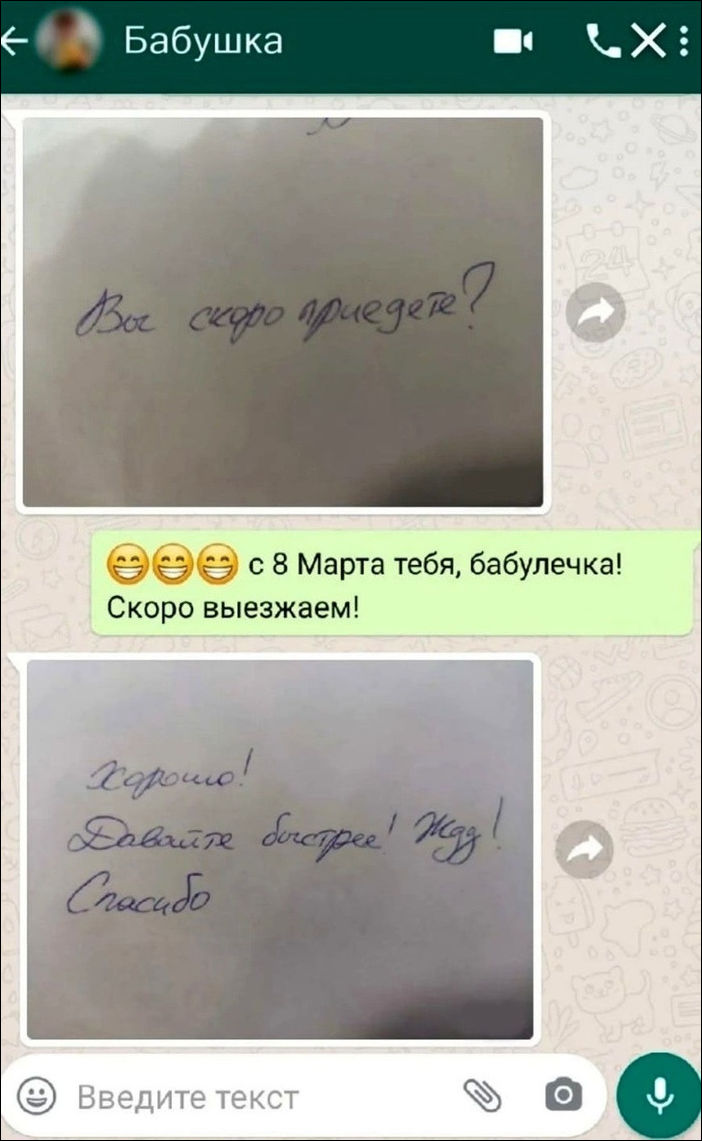 Бабушка
Вы скоро приедете?
😁😁😁 с 8 Марта тебя, бабулечка!
Скоро выезжаем!
Хорошо!
Давайте быстрее! Жду!
Спасибо
Введите текст